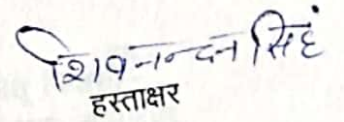 शिवनन्दन सिहं
हस्ताक्षर